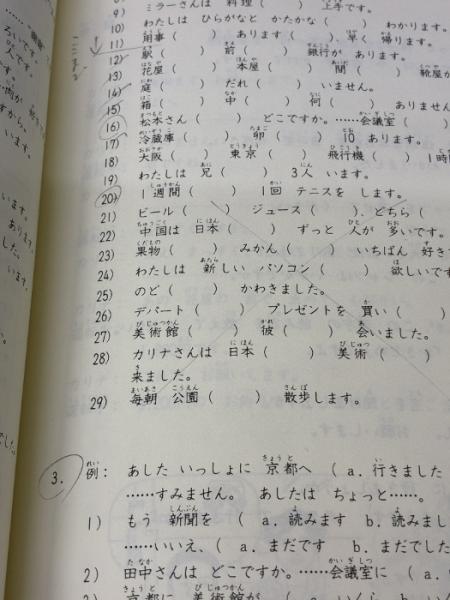 9) ミラーさんは 料理 ( ) 上手です。
10) わたしは ひらがなと かたかな ( ) わかります。
11) 用事 ( ) あります ( )、早く 帰ります。
12) 駅 ( ) 前 ( ) 銀行が あり
13) 花屋 ( ) 本屋 ( ) 間 ( ) 靴屋が
14) 庭 ( ) だれ ( ) いません。
15) 箱 ( ) 中 ( ) 何 ( ) ありません
16) 松本さん ( ) どこですか。……会議室 (
17) 冷蔵庫 ( ) 卵 ( ) 10 あります。
18) 大阪 ( ) 東京 ( ) 飛行機 ( ) 1時
19) わたしは 兄 ( ) 3人 います。
20) 1週間 ( ) 1回 テニスを します。
21) ビール ( ) ジュース ( )、どちら (
22) 中国は 日本 ( ) ずっと 人が 多いです。
23) 果物 ( ) みかん ( ) いちばん 好き
24) わたしは 新しい パソコン ( ) 欲しいです
25) のど ( ) かわきました。
26) デパート ( ) プレゼントを 買い ( )
27) 美術館 ( ) 彼 ( ) 会いました。
28) カリナさんは 日本 ( ) 美術 ( )
来ました。
29) 毎朝 公園 ( ) 散歩します。
3. 例: あした いっしょに 京都へ ( a. 行きました
……すみません。 あしたは ちょっと……。
1) もう 新聞を ( a. 読みます b. 読みまし
……いいえ、( a. まだです b. まだでした
2) 田中さんは どこですか。……会議室に ( a.
3) 京都に 美術館が ( a. いくら b. い